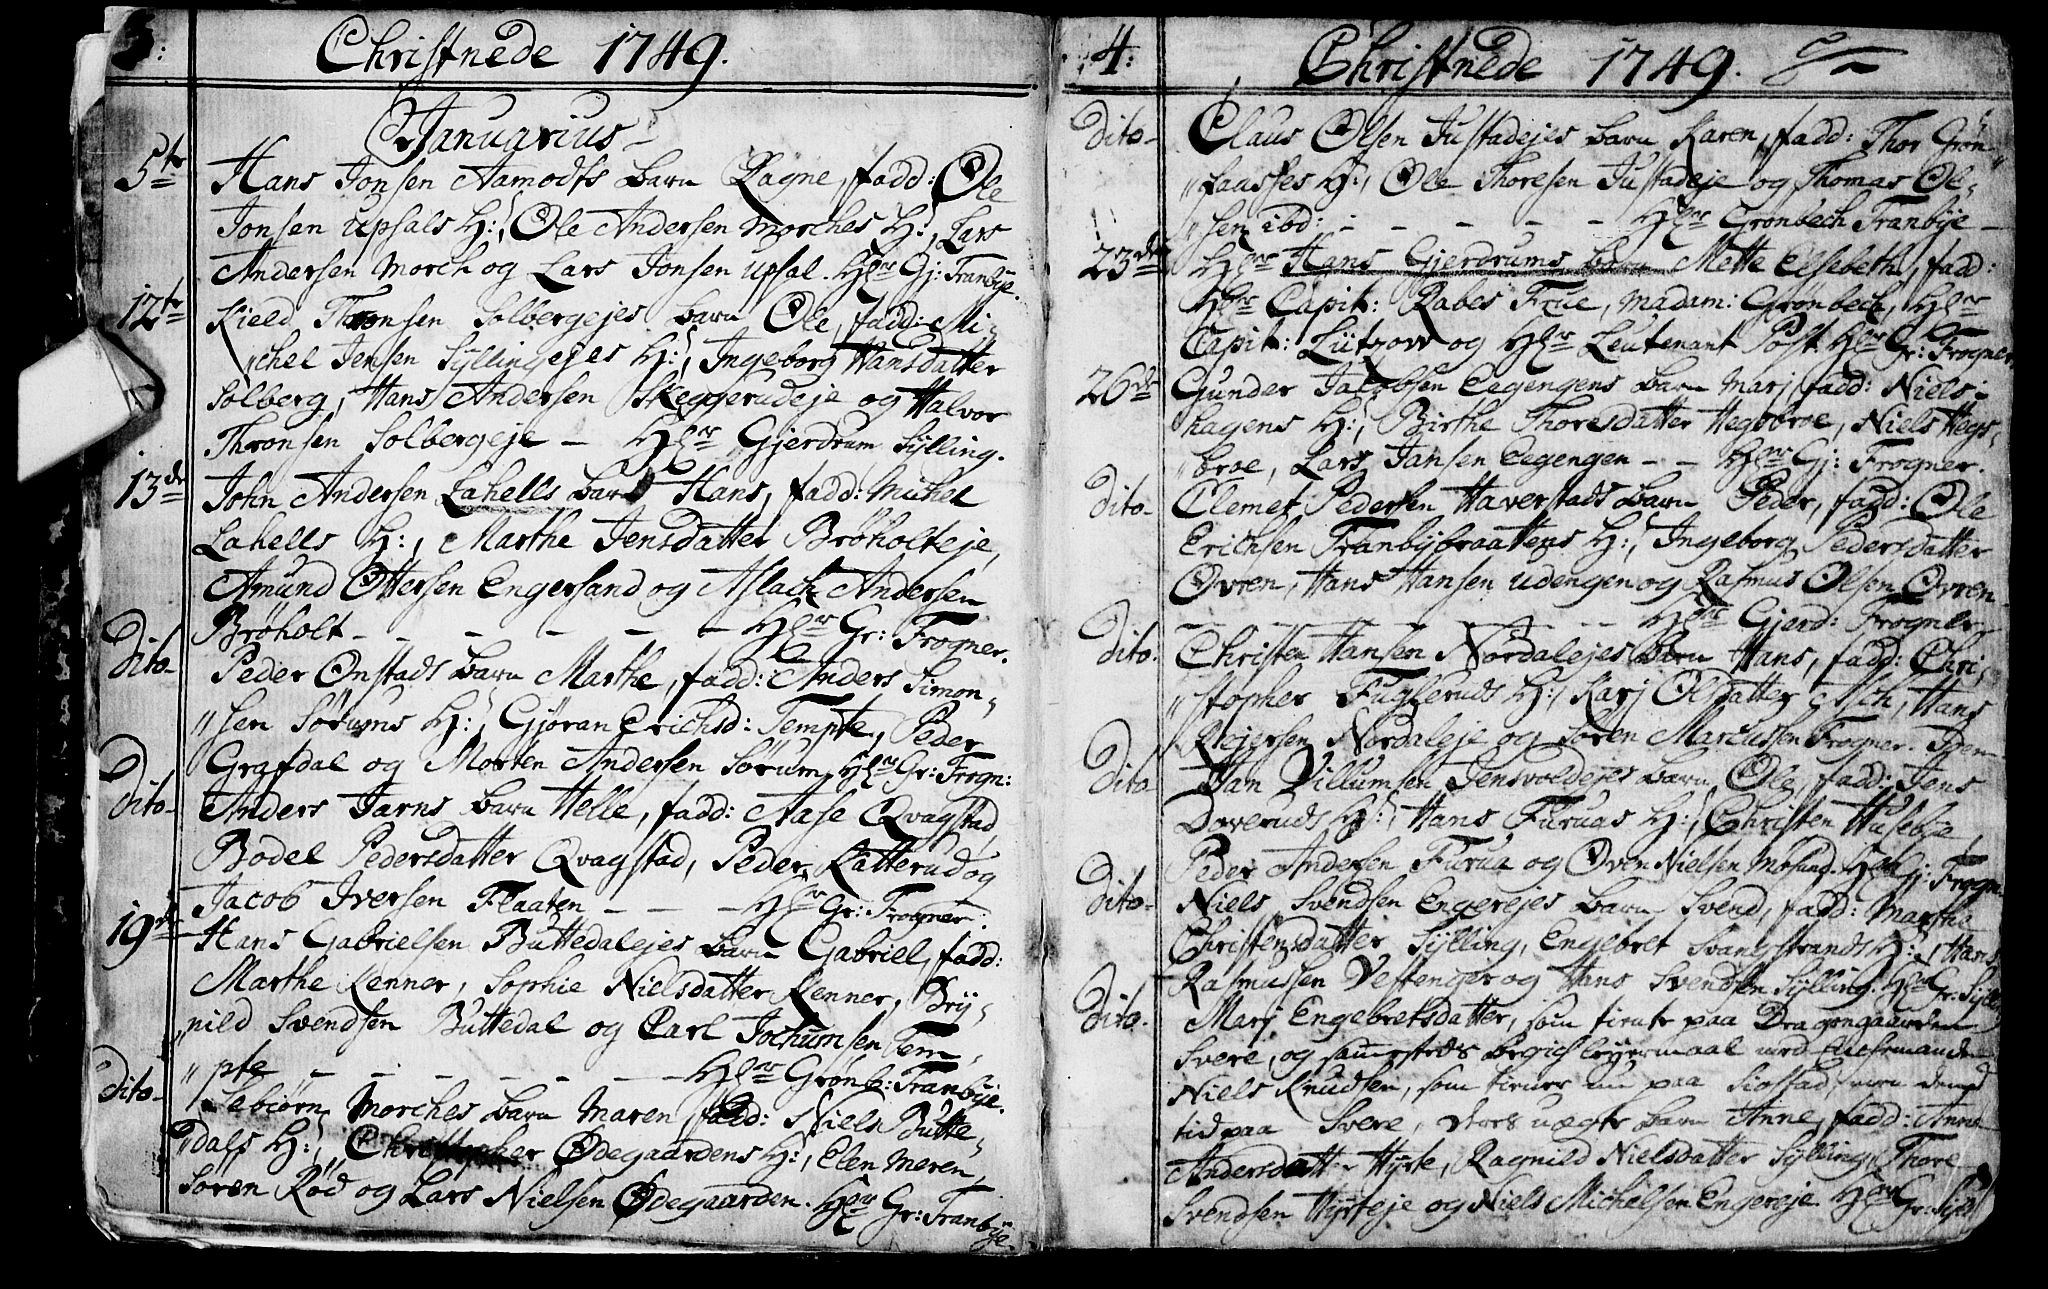 3:
Christnede 1749.
Januarius
5te Hans Jonsen Aamodts barn Ragne, fadd: Ole
Jonsen Upsals H:, Ole Andersen Morches H:, Lars
Andersen Morch og Lars Jonsen Upsal. Hr Gj: Tranbye.
12te Kield Thronsen Solbergejes barn Ole, fadd: Mi„
„chel Jensen Syllingejes H:, Ingeborg Hansdatter
Solberg, Hans Andersen Skeggerudeje og Halvor
Thronsen Solbergeje – Hr Gjerdrum Sylling.
13de John Andersen Lahells barn Hans, fadd: Michel
Lahells H:, Marthe Jensdatter Brøholteje,
Amund Ottersen Engersand og Aslach Andersen
Brøholt – – – – – – Hr Gr: Frogner.
Dito– Peder Onstads barn Marthe, fadd: Anders Simon„
„sen Sørums H:, Gjøran Erichsd: Tempte, Peder
Grafdal og Morten Andersen Sørum, Hr Gr: Frogn:
Dito– Anders Jarns barn Helle, fadd: Aase Qvagstad,
Bodel Pedersdatter Qvagstad, Peder Ratterud og
Jacob Iversen Flaaten – – – Hr Gr: Frogner:
19de Hans Gabrielsen Buttedalejes barn Gabriel, fadd:
Marthe Renner, Sophie Nielsdatter Renner, Bry„
„nild Svendsen Buttedal og Carl Jochumsen Tem„
„pte – – – – – – – Hr Grønb: Tranbye.
Dito– Esebiørn Morches barn Maren, fadd: Niels Butte„
„dals H:, Christopher Ødegaardens H:, Elen Meren,
Søren Rød og Lars Nielsen Ødegaarden. Hr Gr: Tranb
ye.
4:
Christnede 1749.
Dito– Claus Olsen Justadejes barn Karen, fadd: Thor Grøn„
„laasses H:, Ole Thoresen Justadeje og Thomas Ol„
„sen ibd: – – – – – Hr Grønbech Tranbye –
23de Hr Hans Gjerdrums barn Mette Elsebeth, fadd:
Hr Capit: Rabes Frue, Madam: Grønbech, Hr
Capit: Lützow og Hr Leutenant Post. Hr Gr: Frogner.
26de Gunder Jacobsen Eegengens barn Marj, fadd: Niels
hagens H:, Birthe Thoresdatter Hegsbroe, Niels Hegs„
„broe, Lars Jansen Eegengen – – Hr Gj: Frogner.
Dito– Clemet Pedersen Haverstads barn Peder, fadd: Ole
Erichsen Tranbybraatens H:, Ingeborg Pedersdatter
Ovren, Hans Hansen Udengen og Rasmus Olsen Ovren
– – – – – – – – Hr Gjerd: Frogner
Dito. Christen Hansen Nordalejes barn Hans, fadd: Chri„
„stopher Fuglerudss H:, Karj Olsdatter Asch, Hans
Rejersen Nordaleje og Søren Marcussen Frogner. Idem
Dito Ham Villumsen Jensvoldejes barn Ole, fadd: Jens
Daveruds H:, Hans Furuas H:, Christen Husebye,
Peder Andersen Furua og Oven Nielsen Mosand. Hr Gj: Frogn:
Dito– Niels Svendsen Engerejes barn Svend, fadd: Marthe
Christensdatter Sylling, Engebret Svangstrands H:, Hans
Rasmussen Vestenger og Hans Svendsen Sylling. Hr Gr: Sylli
Dito. Marj Engebretsdatter, som tiente paa Dragongaarden
Svere, og sammesteds begich leyermaal med Enchemanden
Niels Knudsen, som tiener nu paa Kiostad, men dend
tid paa Svere, deres uægte barn Anne, fadd: Anne
Andersdatter Hyrte, Ragnild Nielsdatter Sylling, Thore
Svendsen Hyrteje og Niels Michelsen Engereje. Hr Gr: Syll